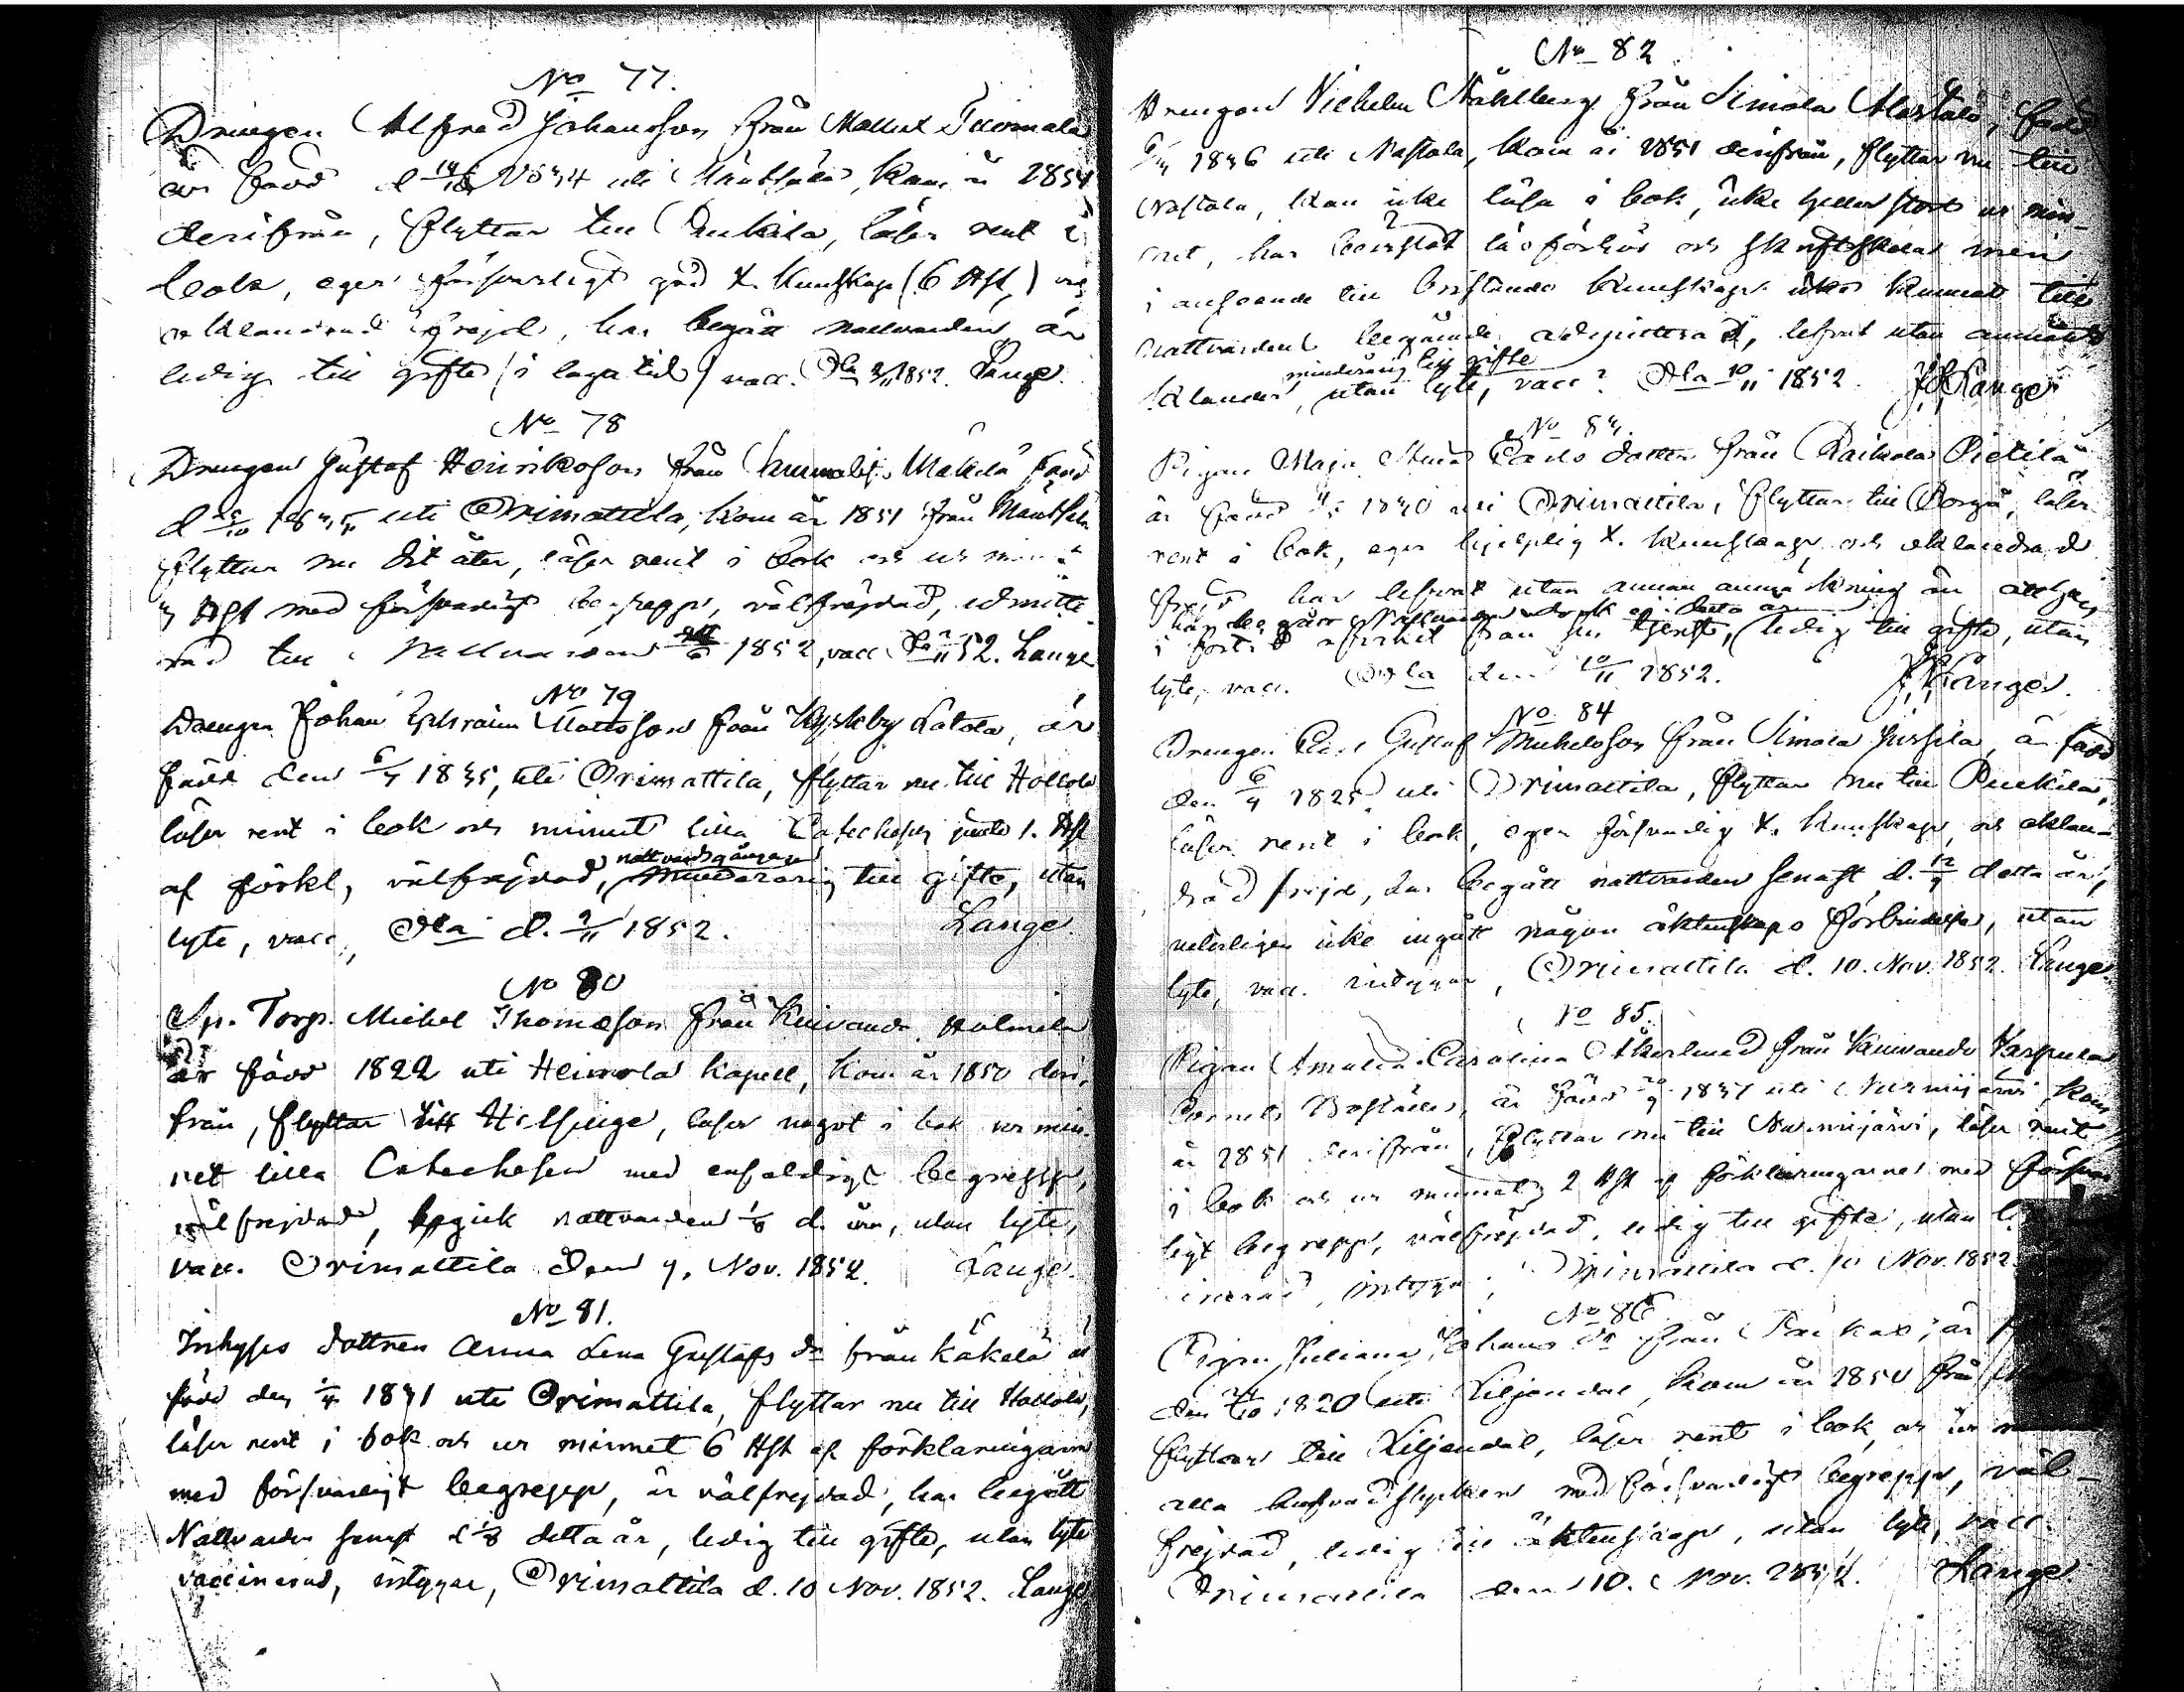 No 77.
Drengen Alfred Johansson från Mallusk Tuomala
är född d 14/10 1834 uti Mäntsälä, kom år 1851
derifrån, flyttar till Pukkila, läser rent i
bok, eger försvarligt god X. kunskap (6 Hst)
oklandrad frejd, har begått nattvarden är
ledig till gifte (i laga tid) vacc. Ola 9/11 1852. Lange.
No 78
Drengen Gustaf Henriksson från Sammalisto Mäkelä född
d 25/10 1835 uti Orimattila, kom år 1851 från Mäntsälä
flyttar nu dit åter, läser rent i bok och ur minnet
3 Hst med försvarligt begrepp, välfrejdad, admitte
rad till Nattvarden 1852, vacc Ola 52. Lange
No 79
Drengen Johan Ephraim Mattsson från Kyskby Latola, är
född den 6/4 1835, uti Orimattila, flyttar nu till Hollola
läser rent i bok och minnet lilla Catechesen jemte 1. Hst
af förkl, välfrejdad, nattvardsgången till gifte, utan
lyte, vacc, Ola d. 9/11 1852. Lange
No 80
Sp. Torp. Michel Thomasson från Kuivando Holmila
är född 1822 uti Heinola Kapell, kom år 1850 deri-
från, flyttar till Helsinge, läser något i bok ur min-
net lilla Catechesen med enfaldigt begrepp,
välfrejdad, begick nattvarden 1/8 d. år, utan lyte,
vacc. Orimattila den 9. Nov. 1852. Lange.
No 81.
Inhyses dottren Anna Lena Gustafs dr från Käkelä är
född den 1/4 1831 uti Orimattila, flyttar nu till Hollola,
läser rent i bok och ur minnet 6 Hst af förklaringarne
med försvarligt begrepp, är välfrejdad, har begått
Nattvarden senast d 1/8 detta år, ledig till gifte, utan lyte
vaccinerad, intygar, Orimattila d. 10 Nov. 1852. Lange
No 82
Drengen Vilhelm Ståhlberg från Simola Alastalo, född
1836 uti Nastola, kom år 1851 derifrån, flyttar nu till
Nastola, kan icke läsa i bok, icke heller stort ur min-
net, har bevistat läsförhör och skriftskola men
i anseende till bristande kunskap icke kunnat till
Nattvardens begående admitteras, lefvat utan anmärkt
minderårig till gifte
klander, utan lyte, vacc. Ola 10/11 1852 J J Lange
No 83.
Pigan Maja Stina Carls dotter från Räikälä Pietilä
är född 1830 uti Orimattila, flyttar till Borgå, läser
rent i bok, eger hjelplig X. kunskap och oklandrad
frejd har lefvat utan annan anmärkning än att hon
har begått Nattvarden detta år
i förtid afvikit från sin tjenst, ledig till gifte, utan
lyte, vacc. Ola den 10/11 1852. J J Lange.
No 84
Drengen Carl Gustaf Michelsson från Simola Jussila är född
den 6/4 1825 uti Orimattila, flyttar nu till Pukkila,
läser rent i bok, eger försvarlig X. kunskap och oklan-
drad frejd, har begått nattvarden senast d. 12/9 detta år,
veterligen icke ingått någon äktenskaps förbindelse, utan
lyte, vacc. intygar, Orimattila d. 10. Nov. 1852. Lange
No 85.
Pigan Amalia Carolina Åkerlund från Kuivando Kaspila
Cornets Boställe, är född 1831 uti Nurmijärvi kom
år 1851 derifrån, flyttar nu till Nurmijärvi, läser rent
i bok och ur minnet 2 Hst af förklaringarne med försvar
ligt begrepp, välfrejdad, ledig till gifte, utan
cinerad, intygar, Orimattila d. 10 Nov. 1852
No 86
Pigan Juliana Johans dr från är
den 24/10 1820 uti Liljendal, kom år 1850 från
flyttar till Liljendal, läser rent i bok och ur
alla hufvudstycken med försvarligt begrepp, väl-
frejdad, ledig till äktenskap, utan lyte, vacc.
Orimattila den 10. Nov. 1852. Lange.